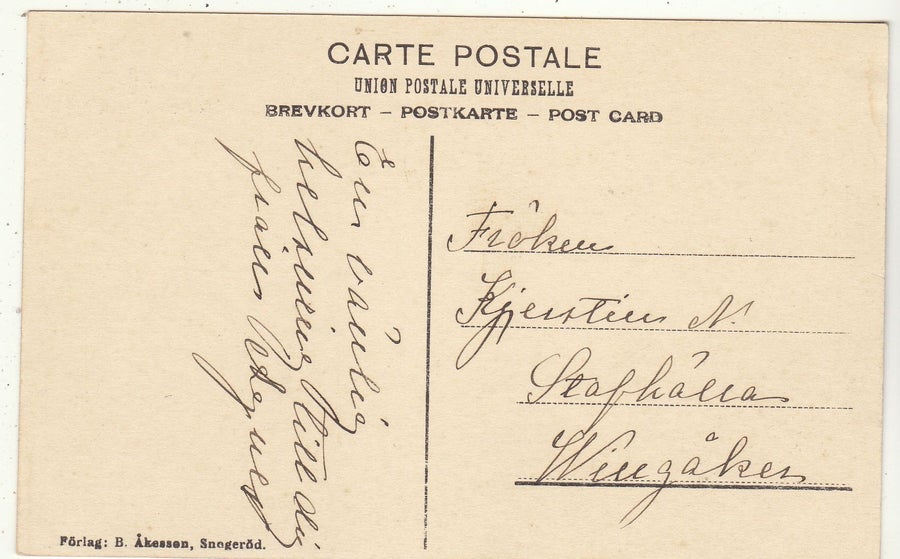 CARTE POSTALE
UNION POSTALE UNIVERSELLE
BREVKORT – POSTKARTE – POST CARD
En vänlig
helsning till dig
från
Fröken
Kjerstin N.
Wingåker
Förlag: B. Åkesson, Snogeröd.